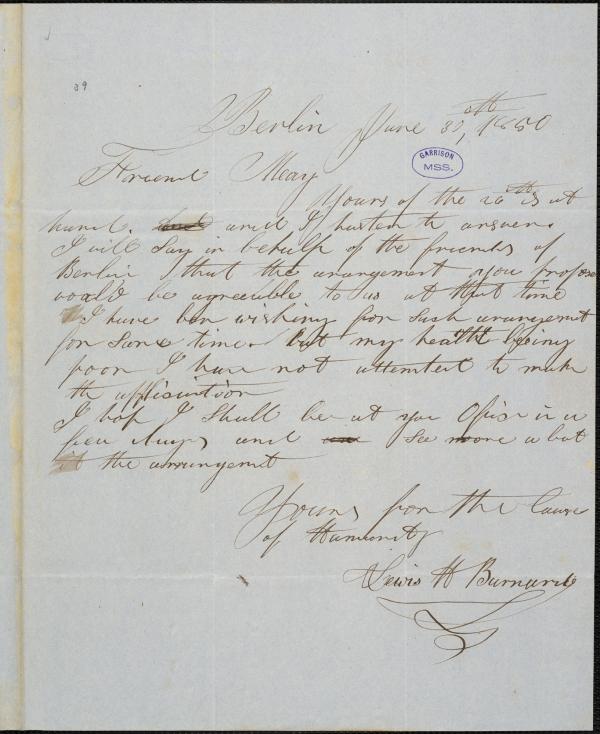 39
Berlin June 30th, 1850
GARRISON
MSS.
Friend May
Yours of the 26th is at
hand. and I hasten to answer.
I will say in behalf of the friends of
Berlin that the arangement you propose
would be agreeable to us at that time
I have ben wishing for such arangemt
for some time. but my health being
poor I have not attemted to make
the application
I hop I shall be at you Ofice in a
few days and see more a bout
it the arrangemt
Yours for the Cause
of Humanity
Lewis H Barnard